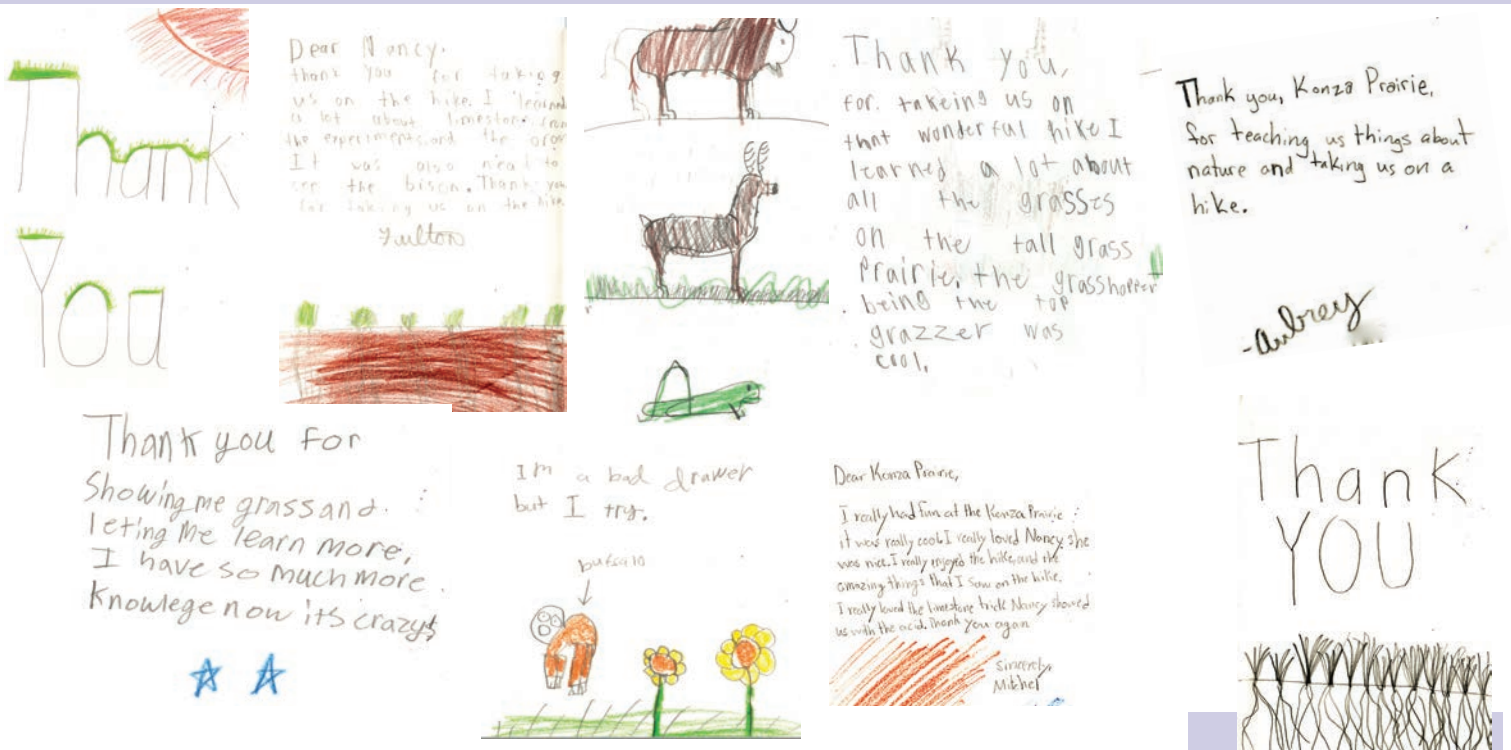 Thank
You
Dear Nancy.
thank you for taking
us on the hike. I learned
a lot about limestone from
the experiment and the
It was also neat to
see the bison. Thank you
for taking us on the hike
Fulton
Thank you,
for. takeing us on
that wonderful hike I
learned a lot about
all the grasses
on the tall grass
Prairie, the grasshopper
being the top
grazzer was
cool.
Thank you, Konza Prairie,
for teaching us things about
nature and taking us on a
hike.
-Aubrey
Thank you for
Showing me grass and.
leting Me learn more,
I have so much more
knowlege now its crazy
Im a bad drawer
but I try.
buffalo
Dear Konza Prairie,
I really had fun at the Konza Prairie
it was really cool. I really loved Nancy, she
was nice. I really enjoyed the hike, and the
amazing things that I saw on the hike.
I really loved the limestone trick Nancy showed
us with the acid. Thank you again
Sincerely,
Mitchel
Thank
YOU